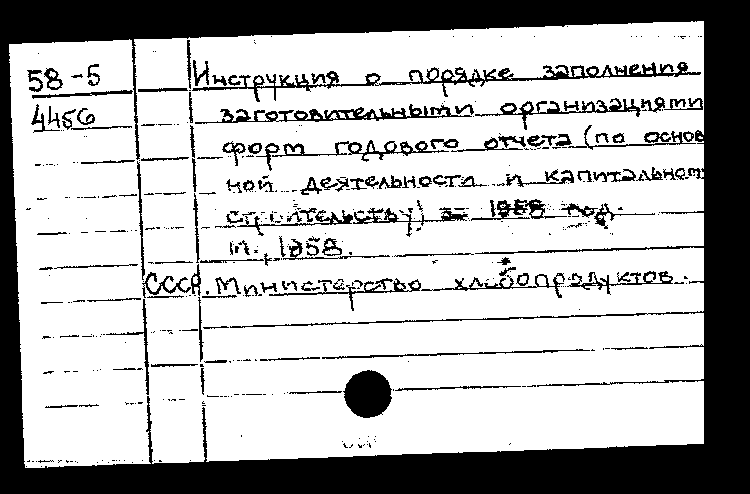 58-5
Инструкция о порядке заполнения
4456
заготовительными организациями
форм годового отчета (по основ
ной деятельности и капитальном
строительству) за 1958 год.
м., 1958.
СССР. Министерство хлебопродуктов.